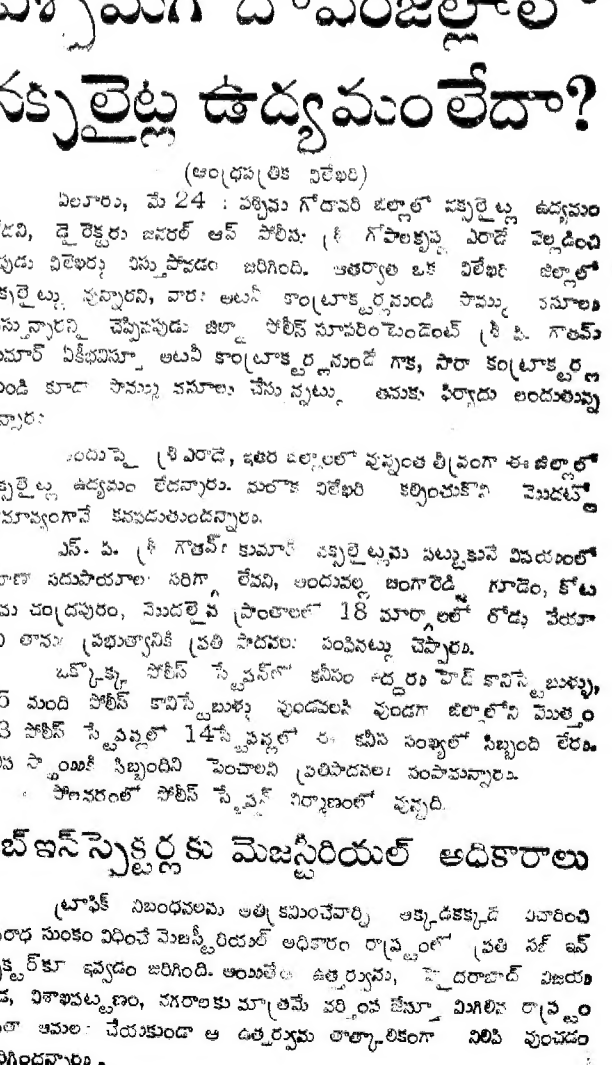 పశ్చిమగోదావరిజిల్లాలో
నక్సలైట్ల ఉద్యమం లేదా?
(ఆంధ్రపత్రిక విలేఖరి)
ఏలూరు, మే 24 : పశ్చిమ గోదావరి జిల్లాలో నక్సలైట్లు ఉద్యమం
డైరెక్టరు జనరల్ ఆఫ్ పోలీసు శ్రీ గోపాలకృష్ణ ఎరాడే వెల్లడించి
విలేఖర్లు విస్తుపోవడం జరిగింది. ఆతర్వాత ఒక విలేఖరి జిల్లాలో
వున్నారని, వారు అటవీ కాంట్రాక్టర్లనుండి సొమ్ము వసూలు
చెప్పినపుడు జిల్లా పోలీస్ సూపరింటెండెంట్ శ్రీ పి. గౌతమ్
ఏకీభవిస్తూ అటవీ కాంట్రాక్టర్లనుండే గాక, సారా కంట్రాక్టర్ల
కూడా సొమ్ము వసూలు చేస్తున్నట్లు తమకు ఫిర్యాదు లందుతున్న
శ్రీ ఎరాడే, ఇతర జిల్లాలలో వున్నంత తీవ్రంగా ఈ జిల్లాలో
ఉద్యమం లేదన్నారు. మరొక విలేఖరి కల్పించుకొని మొదట్లో
కనపడుతుందన్నారు.
ఎస్. పి. శ్రీ గౌతమ్ కుమార్ నక్సలైట్లను పట్టుకునే విషయంలో
సదుపాయాలు సరిగ్గా లేవని, అందువల్ల జంగారెడ్డి గూడెం, కోట
చంద్రపురం, మొదలైన ప్రాంతాలలో 18 మార్గాలలో రోడ్లు వేయా
తాను ప్రభుత్వానికి ప్రతి పాదనలు పంపినట్లు చెప్పారు.
ఒక్కొక్క పోలీస్ స్టేషన్‌లో కనీసం ఇద్దరు హెడ్ కానిస్టేబుళ్ళు,
మంది పోలీస్ కానిస్టేబుళ్ళు వుండవలసి వుండగా జిల్లాలోని మొత్తం
పోలీస్ స్టేషన్లలో 14స్టేషన్లలో ఈ కనీస సంఖ్యలో సిబ్బంది లేరు.
సిబ్బందిని పెంచాలని ప్రతిపాదనలు పంపామన్నారు.
పోలవరంలో పోలీస్ స్టేషన్ నిర్మాణంలో వున్నది.
సబ్ ఇన్ స్పెక్టర్లకు మెజస్టీరియల్ అధికారాలు
ట్రాఫిక్ నిబంధనలను అతిక్రమించేవార్ని అక్కడికక్కడే విచారించి
సుంకం విధించే మెజస్టీరియల్ అధికారం రాష్ట్రంలో ప్రతి సబ్ ఇన్
ఇవ్వడం జరిగింది. అయితే ఉత్తర్వును, హైదరాబాద్ విజయ
విశాఖపట్టణం, నగరాలకు మాత్రమే వర్తింప జేస్తూ మిగిలిన రాష్ట్రం
అమలు చేయకుండా ఆ ఉత్తర్వును తాత్కాలికంగా నిలిపి వుంచడం